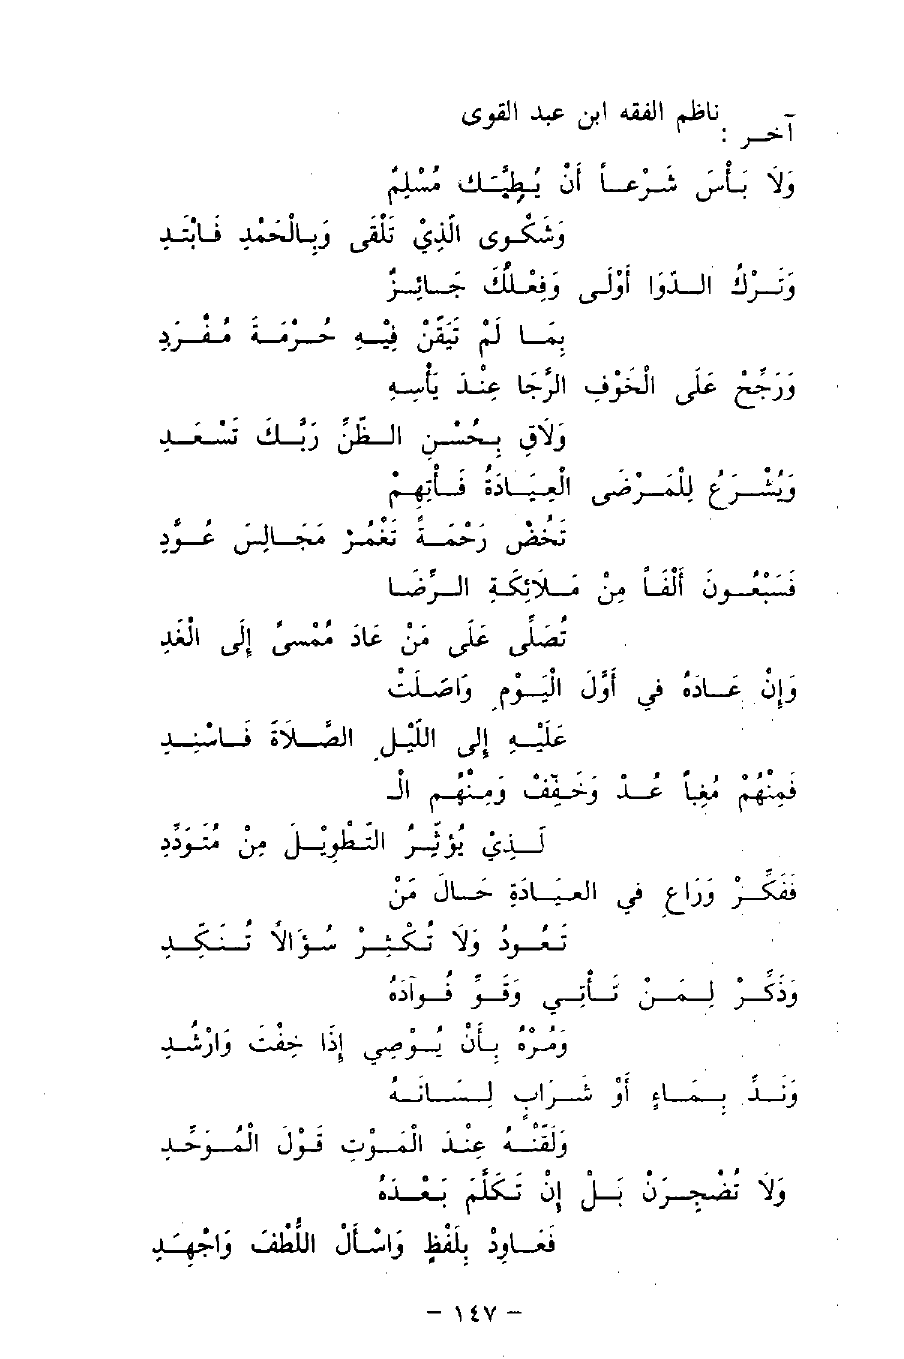 ناظم الفقه ابن عبد القوى
آخر :
وَلاَ بَأْسَ شَرْعاً أَنْ يُطِبَّكَ مُسْلِمٌ
وَشَكْوى الَّذِيْ تَلْقَى وَبِالْحَمْدِ فَابْتَدِ
وَتَرْكُ الدَّوَا أَوْلَى وَفِعْلُكَ جَائِزٌ
بِمَا لَمْ تَيَقَّنْ فِيْهِ حُرْمَةَ مُفْرَدِ
وَرَجِّحْ عَلَى الْخَوْفِ الرَّجَا عِنْدَ يَأْسِهِ
وَلاَقِ بِحُسْنِ الظَّنِّ رَبَّكَ تَسْعَدِ
وَيُشْرَعُ لِلْمَرْضَى الْعِيَادَةُ فَأْتِهِمْ
تَخُضْ رَحْمَةً تَغْمُرْ مَجَالِسَ عُوَّدِ
فَسَبْعُونَ أَلْفاً مِنْ مَلَائِكَةِ الرِّضَا
تُصَلِّى عَلَى مَنْ عَادَ مُمْسىً إِلَى الْغَدِ
وَإِنْ عَادَهُ فِى أَوَّلَ الْيَوْمِ وَاصَلَتْ
عَلَيْهِ إِلى اللَّيْلِ الصَّلَاةَ فَاسْنِدِ
فَمِنْهُمْ مُغِباً عُدْ وَخَفِّفْ وَمِنْهُمِ الْـ
ـذِيْ يُؤْثِرُ التَّطْوِيْلَ مِنْ مُتَوَدِّدِ
فَفَكِّرْ وَرَاعِ فى العِيَادَةِ حَالَ مَنْ
تَعُودُ وَلَا تُكْثِرْ سُؤَالاً تُنَكِّدِ
وَذَكِّرْ لِمَنْ تَأْتِي وَقَوِّ فُوآدَهُ
وَمُرْهُ بِأَنْ يُوْصِي إِذَا خِفْتَ وَارْشُدِ
وَنَدِّ بِمَاءٍ أَوْ شَرَابٍ لِسَانَهُ
وَلَقِّنْهُ عِنْدَ الْمَوْتِ قَوْلَ الْمُوَحِّدِ
وَلَا تُضْجِرَنْ بَلْ إِنْ تَكَلَّمَ بَعْدَهُ
فَعَاوِدْ بِلَفْظٍ وَاسْأَلْ اللُّطْفَ وَاجْهَدِ
- ١٤٧ -